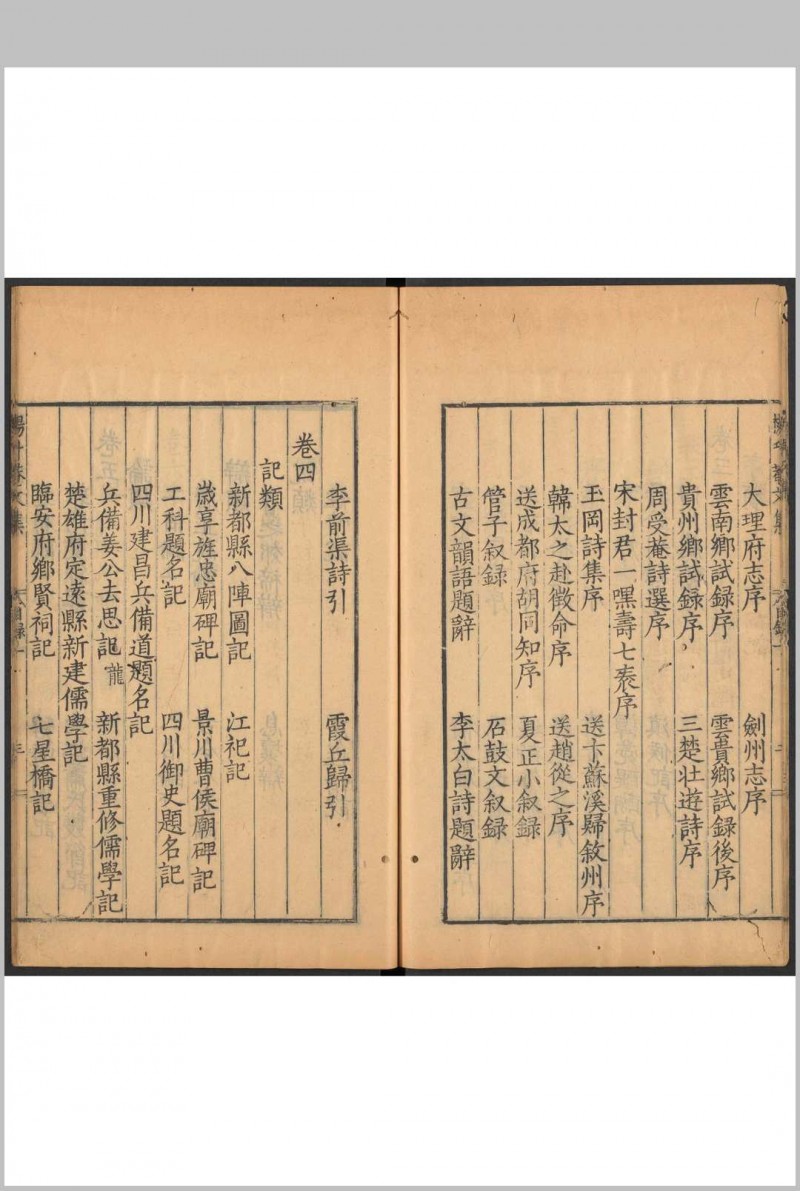 大理府志序　劍州志序
雲南鄉試録序　雲貴鄉試録後序
貴州鄉試録序　三楚壮遊詩序
周受菴詩選序
宋封君一嘿壽七袠序
玉岡詩集序　送卞蘇溪歸敘州序
韓太之赴徴命序　送趙從之序
送成都府胡同知序　夏正小叙録
管子叙録　石鼓文叙録
古文韻語題辭　李太白詩題辭
李前渠詩引　霞丘歸引
卷四
記類
新都縣八陣圖記　江祀記
歲享旌忠廟碑記　景川曹侯廟碑記
工科題名記　四川御史題名記
四川建昌兵備道題名記
兵備姜公去思記 龍　新都縣重修儒學記
楚雄府定遠縣新建儒學記
臨安府鄉賢祠記　七星橋記